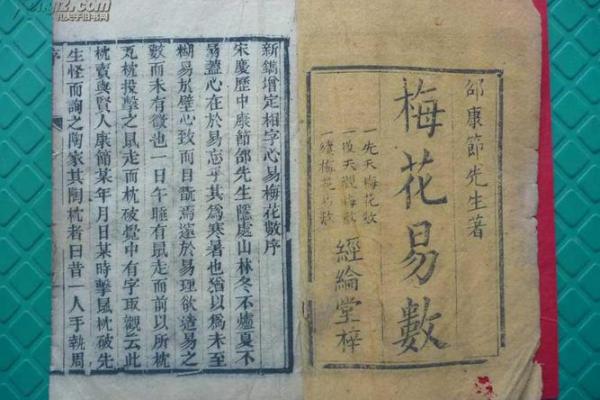 邵康節先生著
梅花易數
一先天梅花數
一後天觀梅數
一續梅花易數
經綸堂梓
新鐫增定相字心易梅花數序
宋慶歷中康節邵先生隱處山林冬不爐夏不
扇蓋心在於易忘乎其為寒暑也猶以為未至
糊易於壁心致而目翫焉邃於易理欲造易之
數而未有徵也一日午睡有鼠走而前以所枕
瓦枕投擊之鼠走而枕破覺中有字取觀云此
枕賣與賢人康節某年月日某時擊鼠枕破先
生怪而詢之陶家其陶枕者曰昔一人手執周
序
孔夫子旧书网